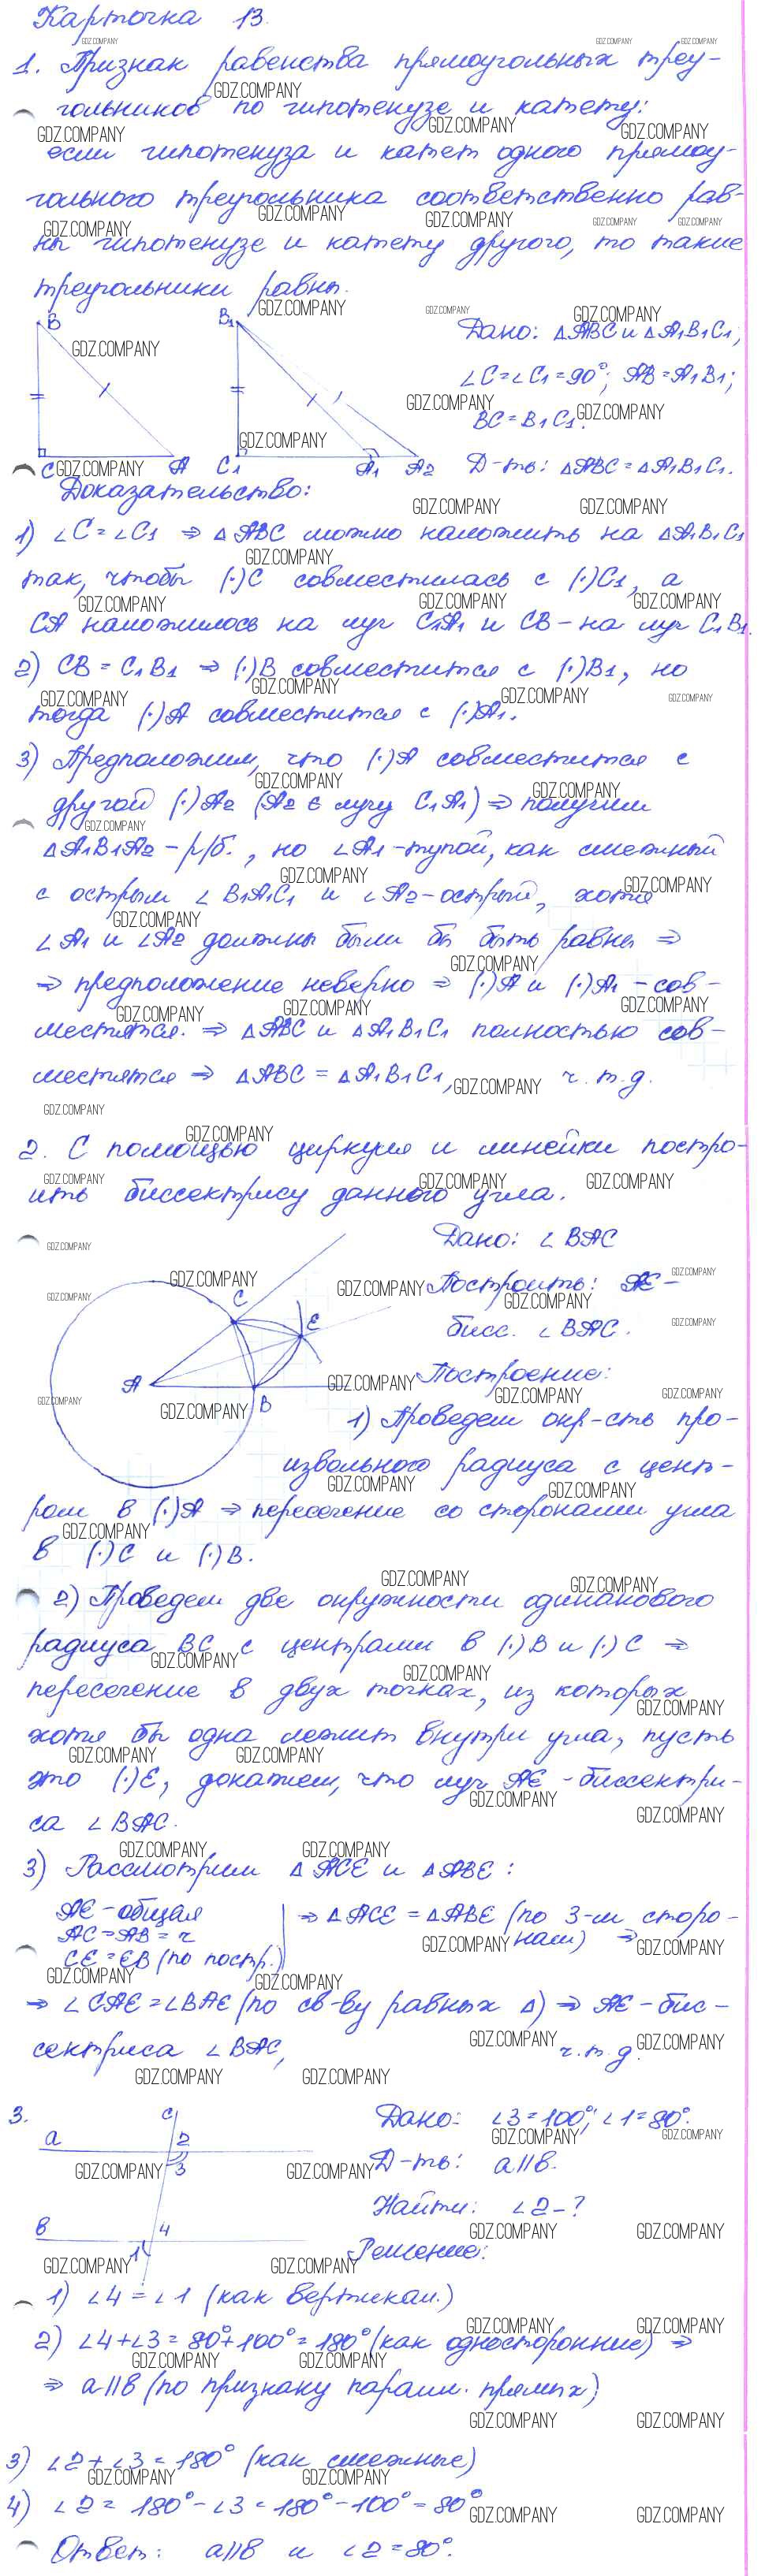 Карточка 13.
1. Признак равенства прямоугольных треу-
гольников по гипотенузе и катету:
если гипотенуза и катет одного прямоу-
гольного треугольника соответственно рав-
ны гипотенузе и катету другого, то такие
треугольники равны.
B B1
Дано: △ABC и △A1B1C1;
∠C=∠C1=90°; AB=A1B1;
BC=B1C1.
C A C1 A1 A2
Д-ть: △ABC=△A1B1C1.
Доказательство:
1) ∠C=∠C1 ⇒ △ABC можно наложить на △A1B1C1
так, чтобы (·)C совместилась с (·)C1, а
CA наложилось на луч C1A1 и CB - на луч C1B1.
2) CB = C1B1 ⇒ (·)B совместится с (·)B1, но
тогда (·)A совместится с (·)A1.
3) Предположим, что (·)A совместится с
другой (·)A2 (A2 ∈ лучу C1A1) ⇒ получим
△A1B1A2 - р/б., но ∠A1 - тупой, как смежный
с острым ∠B1A1C1 и ∠A2 - острый, хотя
∠A1 и ∠A2 должны были бы быть равны ⇒
⇒ предположение неверно ⇒ (·)A и (·)A1 - сов-
местятся. ⇒ △ABC и △A1B1C1 полностью сов-
местятся ⇒ △ABC = △A1B1C1, ч.т.д.
2. С помощью циркуля и линейки постро-
ить биссектрису данного угла.
Дано: ∠BAC
Построить: AE -
бисс. ∠BAC.
C E A B
Построение:
1) Проведем окр-сть про-
извольного радиуса с цент-
ром в (·)A ⇒ пересечение со сторонами угла
в (·)C и (·)B.
2) Проведем две окружности одинакового
радиуса BC с центрами в (·)B и (·)C ⇒
пересечение в двух точках, из которых
хотя бы одна лежит внутри угла, пусть
это (·)E, докажем, что луч AE - биссектри-
са ∠BAC.
3) Рассмотрим △ACE и △ABE:
AE - общая
AC=AB=r
CE=EB (по постр.)
⇒ △ACE = △ABE (по 3-м сторо-
нам) ⇒
⇒ ∠CAE=∠BAE (по св-ву равных △) ⇒ AE - бис-
сектриса ∠BAC, ч.т.д.
3.
c
a 2
3
b 4
1
Дано: ∠3=100°; ∠1=80°.
Д-ть: a||b.
Найти: ∠2-?
Решение:
1) ∠4 = ∠1 (как вертикал.)
2) ∠4+∠3=80°+100°=180° (как односторонние) ⇒
⇒ a||b (по признаку паралл. прямых)
3) ∠2+∠3=180° (как смежные)
4) ∠2 = 180°-∠3=180°-100°=80°
Ответ: a||b и ∠2=80°.
GDZ.COMPANY